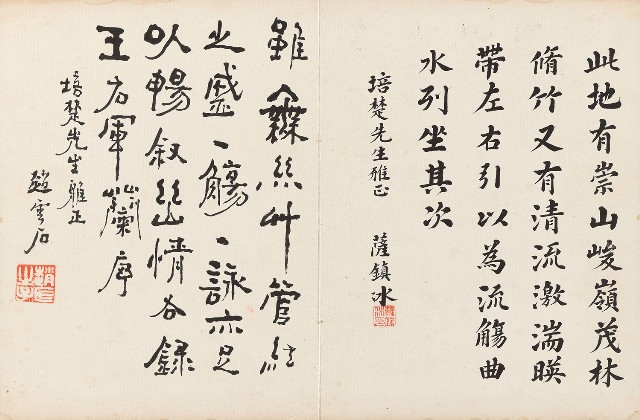 此地有崇山峻嶺茂林
脩竹又有清流激湍暎
帶左右引以為流觴曲
水列坐其次
培楚先生雅正
薩鎮冰
雖無絲竹管絃
之盛一觴一詠亦足
以暢敘幽情 右錄
王右軍蘭序
培楚先生雅正
趙雲石